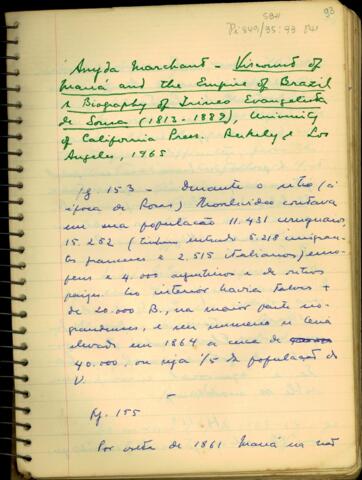 SBH
Pi 349/95:93
93
Anyda Marchant - Viscount of
Mauá and the Empire of Brazil
A Biography of Irineo Evangelista
de Sousa (1813-1889), University
of California Press. Berkeley e Los
Angeles, 1965
pg. 153 - Durante o sitio (à
época de Rosas) Montevideo contava
em sua população 11.431 uruguaios,
15.252 (tinham entrado 5.218 imigran-
tes franceses e 2.515 italianos) euro-
peus e 4.000 argentinos e de outros
paizes. No interior havia talvez +
de 20.000 B., na maior parte rio-
grandenses, e seu numero se teria
elevado em 1864 a cerca de
40.000, ou seja 1/5 da população do
U.
-
Pg. 155
Por volta de 1861 Mauá na